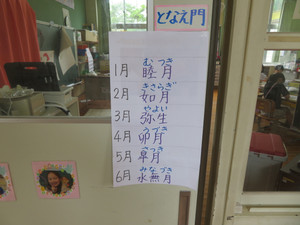 となえ門
むつき
1月 睦月
きさらぎ
2月 如月
やよい
3月 弥生
うづき
4月 卯月
さつき
5月 皐月
みなづき
6月 水無月